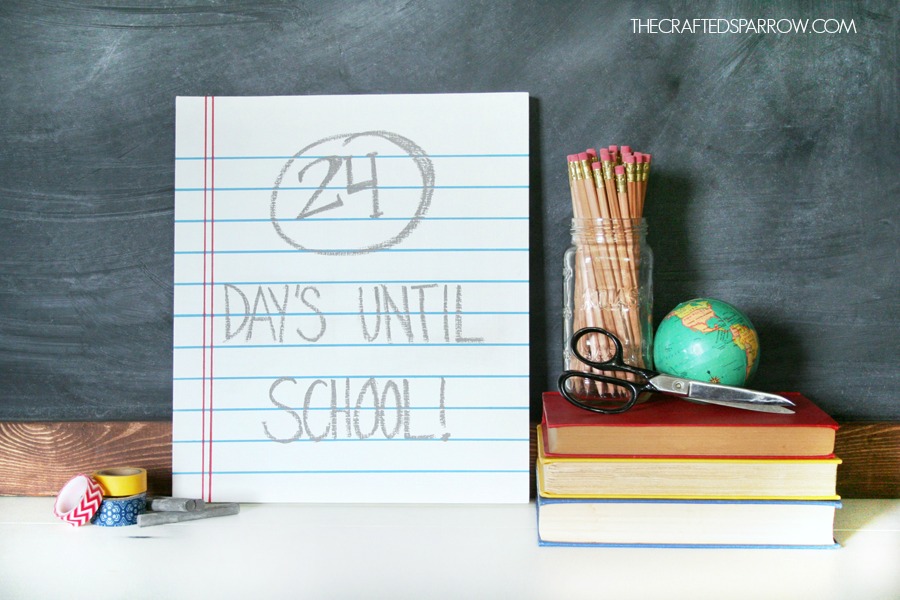 THECRAFTEDSPARROW.COM
24
DAY'S UNTIL
SCHOOL!